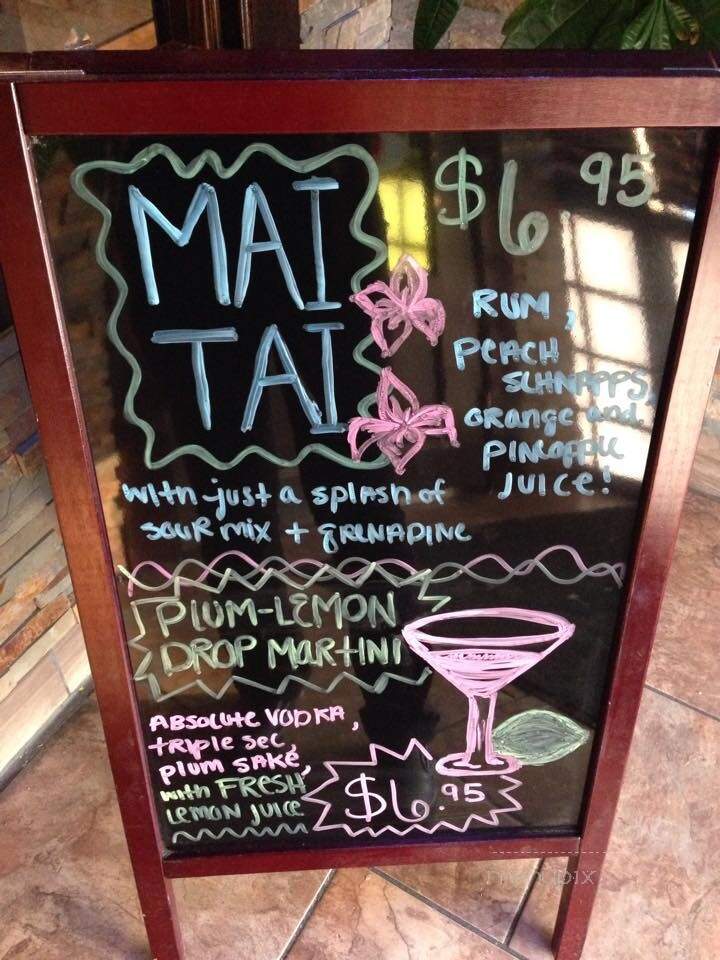 MAI
TAI
$6 95
RUM,
PEACH
SCHNAPPS,
orange and
PINEAPPLE
JUICE!
with just a splash of
sour mix + GRENADINE
PLUM-LEMON
DROP MARTINI
ABSOLUTE VODKA,
triple sec,
plum sake,
with FRESH
LEMON JUICE
$6.95